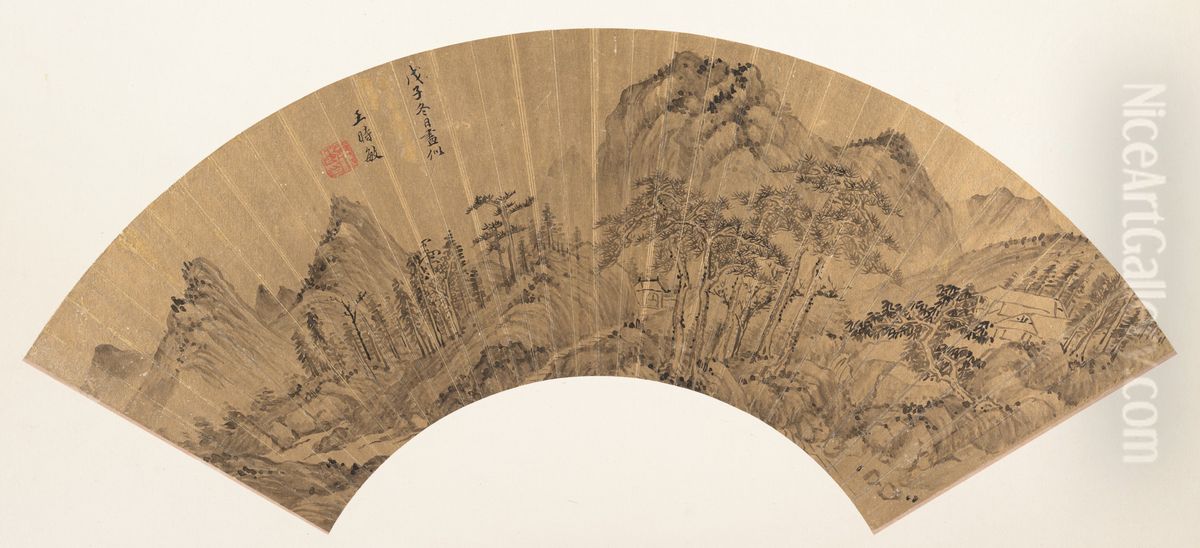 戊子冬日畫似
王時敏
NiceArtGallery.com